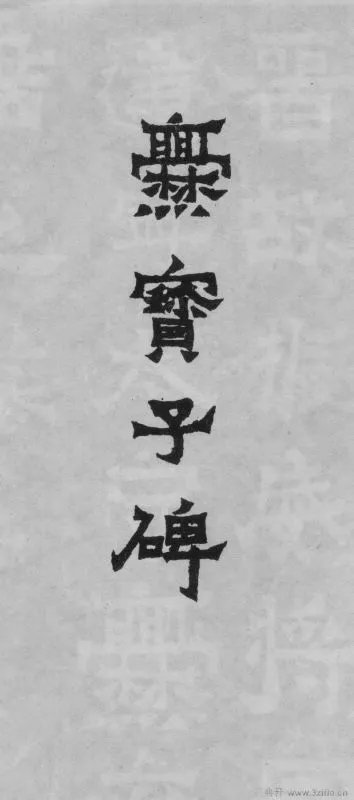 爨寶子碑
www.3zitie.cn